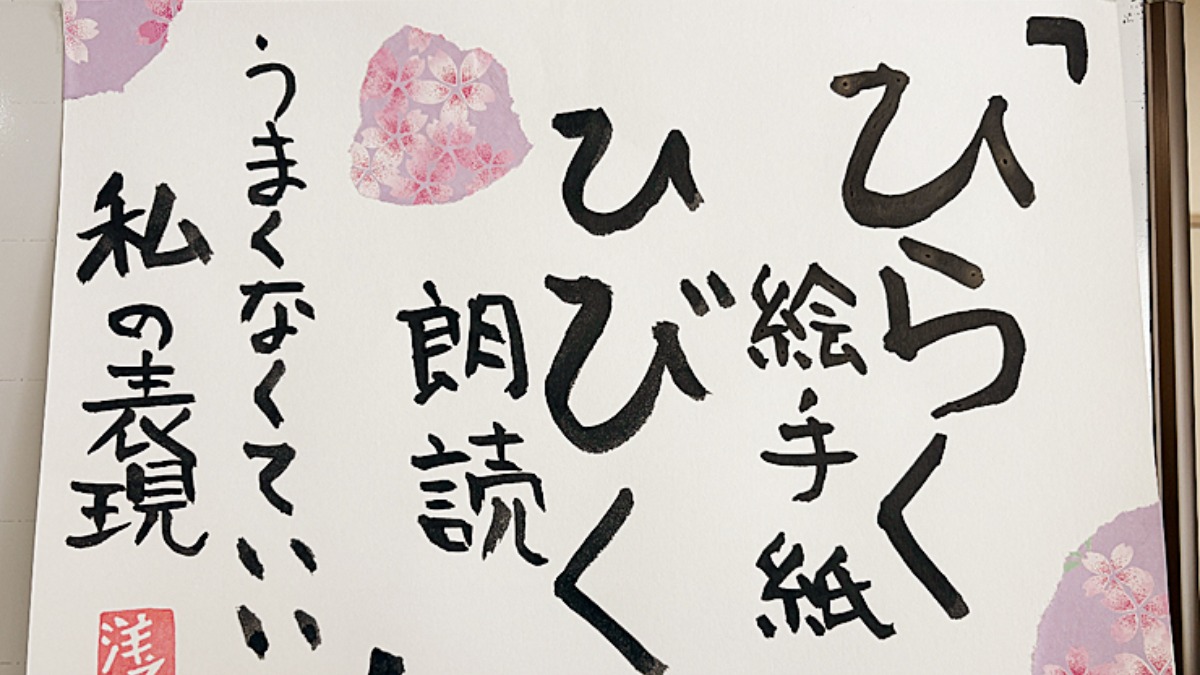 「ひらく
絵手紙
ひびく
朗読
うまくなくていい
私の表現
洋